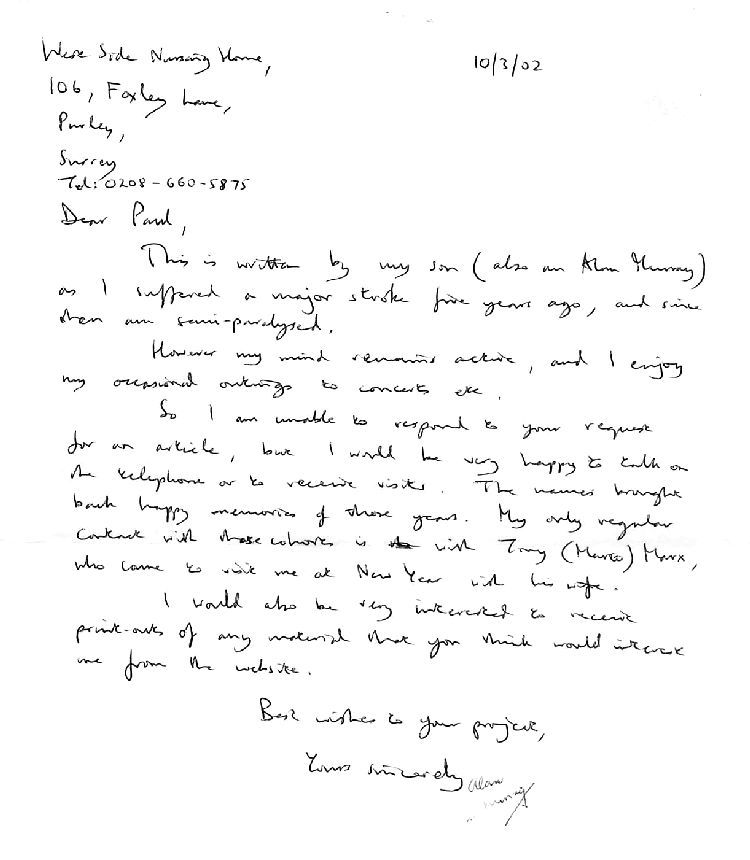 West Side Nursing Home,
10/3/02
106, Foxley Lane,
Purley,
Surrey
Tel: 0208-660-5875
Dear Paul,
This is written by my son (also an Alan Murray)
as I suffered a major stroke five years ago, and since
then am semi-paralysed.
However my mind remains active, and I enjoy
my occasional outings to concerts etc.
So I am unable to respond to your request
for an article, but I would be very happy to talk on
the telephone or to receive visits. The names brought
back happy memories of those years. My only regular
contact with those cohorts is with Tony (Marco) Marx,
who came to visit me at New Year with his wife.
I would also be very interested to receive
print-outs of any material that you think would interest
me from the website.
Best wishes to your project,
Yours sincerely
Alan
Murray